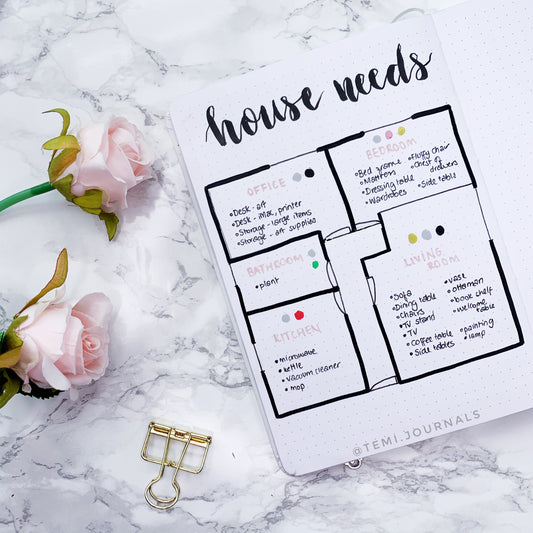 house needs
OFFICE
•Desk - art
•Desk - mac, printer
•Storage - large items
•Storage - art supplies
BEDROOM
•Bed frame
•Mattress
•Dressing table
•Wardrobes
•Fluffy chair
•Chest of drawers
•Side table
BATHROOM
•plant
LIVING
ROOM
•Sofa
•Dining table
•Chairs
•TV stand
•TV
•Coffee table
•Side tables
•vase
•ottoman
•book shelf
•welcome
table
•painting
•lamp
KITCHEN
•microwave
•kettle
•vacuum cleaner
•mop
@TEMI.JOURNALS